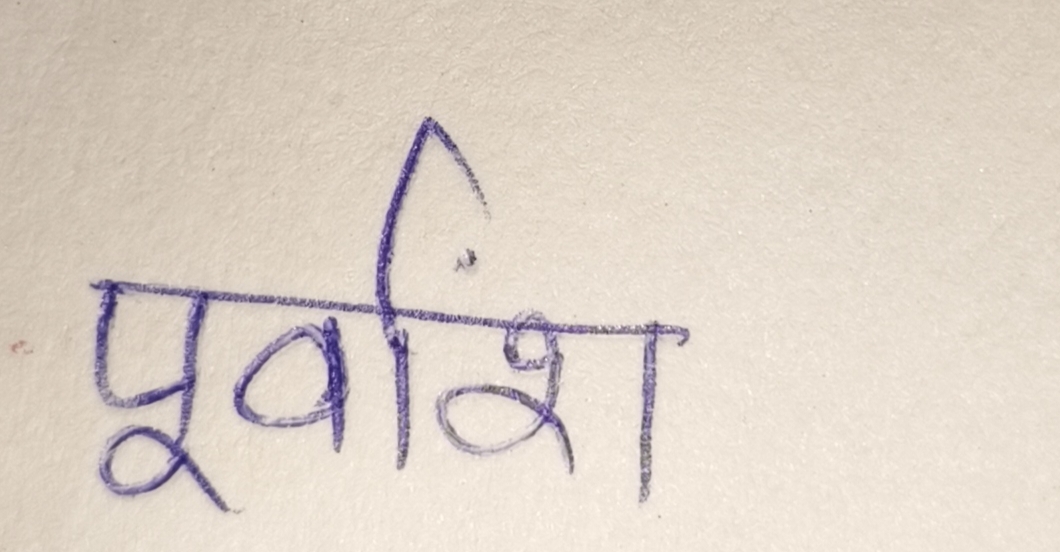 पूर्वांश